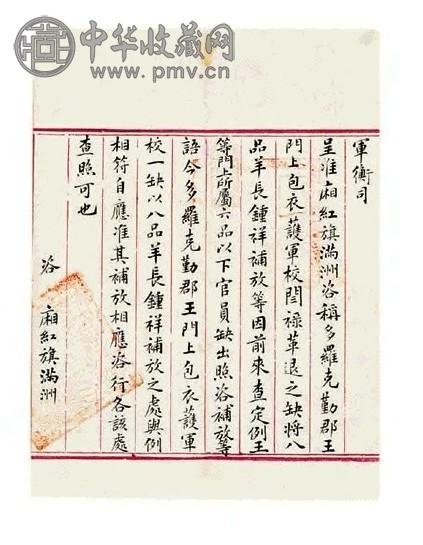 中华收藏网
www.pmv.cn
軍衡司
呈准廂紅旗滿洲咨稱多羅克勤郡王
門上包衣護軍校閆祿革退之缺將八
品羊長鍾祥補放等因前來查定例王
等門上所屬六品以下官員缺出照咨補放等
語今多羅克勤郡王門上包衣護軍
校一缺以八品羊長鍾祥補放之處與例
相符自應准其補放相應咨行各該處
查照可也
咨 廂紅旗滿洲